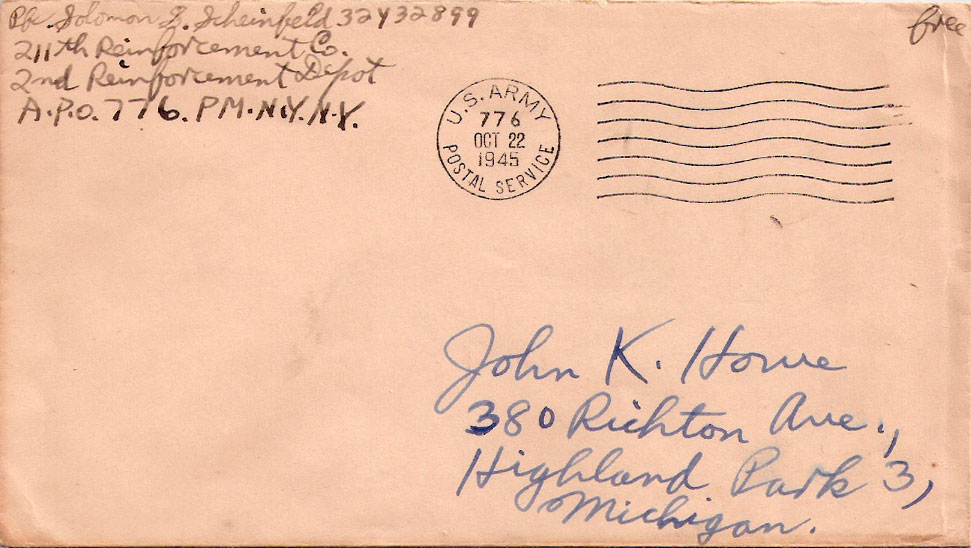 Pfc. Solomon B. Scheinfeld 32432899
211th Reinforcement Co.
2nd Reinforcement Depot
A.P.O. 776. PM. N.Y. N.Y.
free
U.S. ARMY
776
OCT 22
1945
POSTAL SERVICE
John K. Howe
380 Richton Ave.,
Highland Park 3,
Michigan.